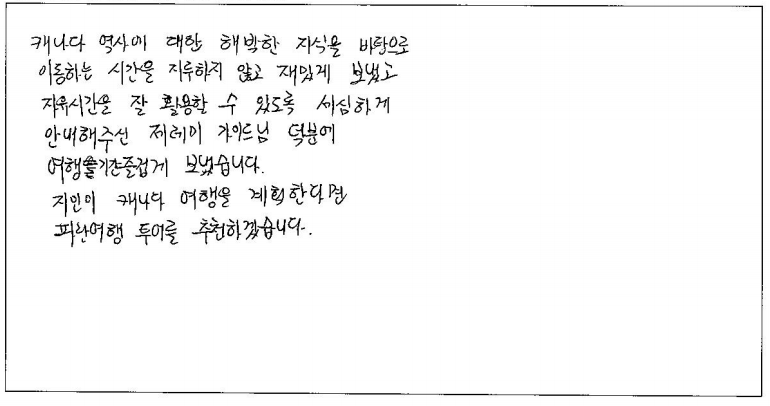 캐나다 역사에 대한 해박한 지식을 바탕으로
이동하는 시간을 지루하지 않고 재밌게 보냈고
자유시간을 잘 활용할 수 있도록 세심하게
안내해주신 제레미 가이드님 덕분에
여행기간즐겁게 보냈습니다.
지인이 캐나다 여행을 계획한다면
파란여행 투어를 추천하겠습니다.